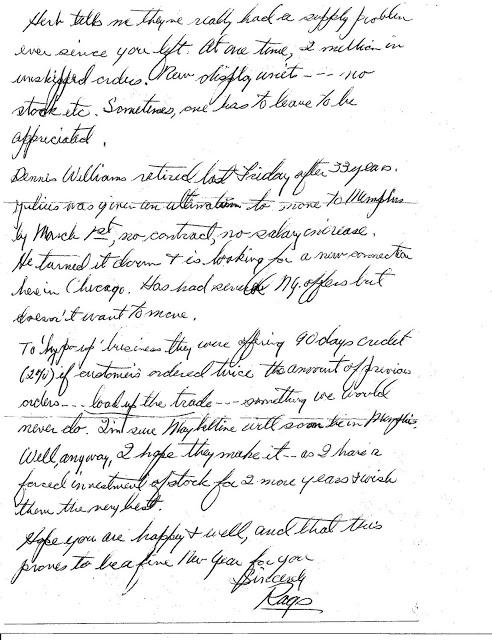 Herb tells me they've really had a supply problem
ever since you left. At one time, 2 million in
unshipped orders. New display unit --- no
stock etc. Sometimes, one has to leave to be
appreciated.
Dennis Williams retired last Friday after 33 years.
Julius was given an ultimatum to move to Memphis
by March 1st, no contract, no salary increase.
He turned it down & is looking for a new connection
here in Chicago. Has had several N.Y. offers but
doesn't want to move.
To "hypo up" business they were offering 90 days credit
if customers ordered twice the amount of previous
orders --- load up the trade --- something we would
never do. I'm sure Maybelline will soon be in Memphis.
Well, anyway, I hope they make it -- as I have a
forced investment of stock for 2 more years & wish
them the very best.
Hope you are happy & well, and that this
proves to be a fine New Year for you
Sincerely
Rags